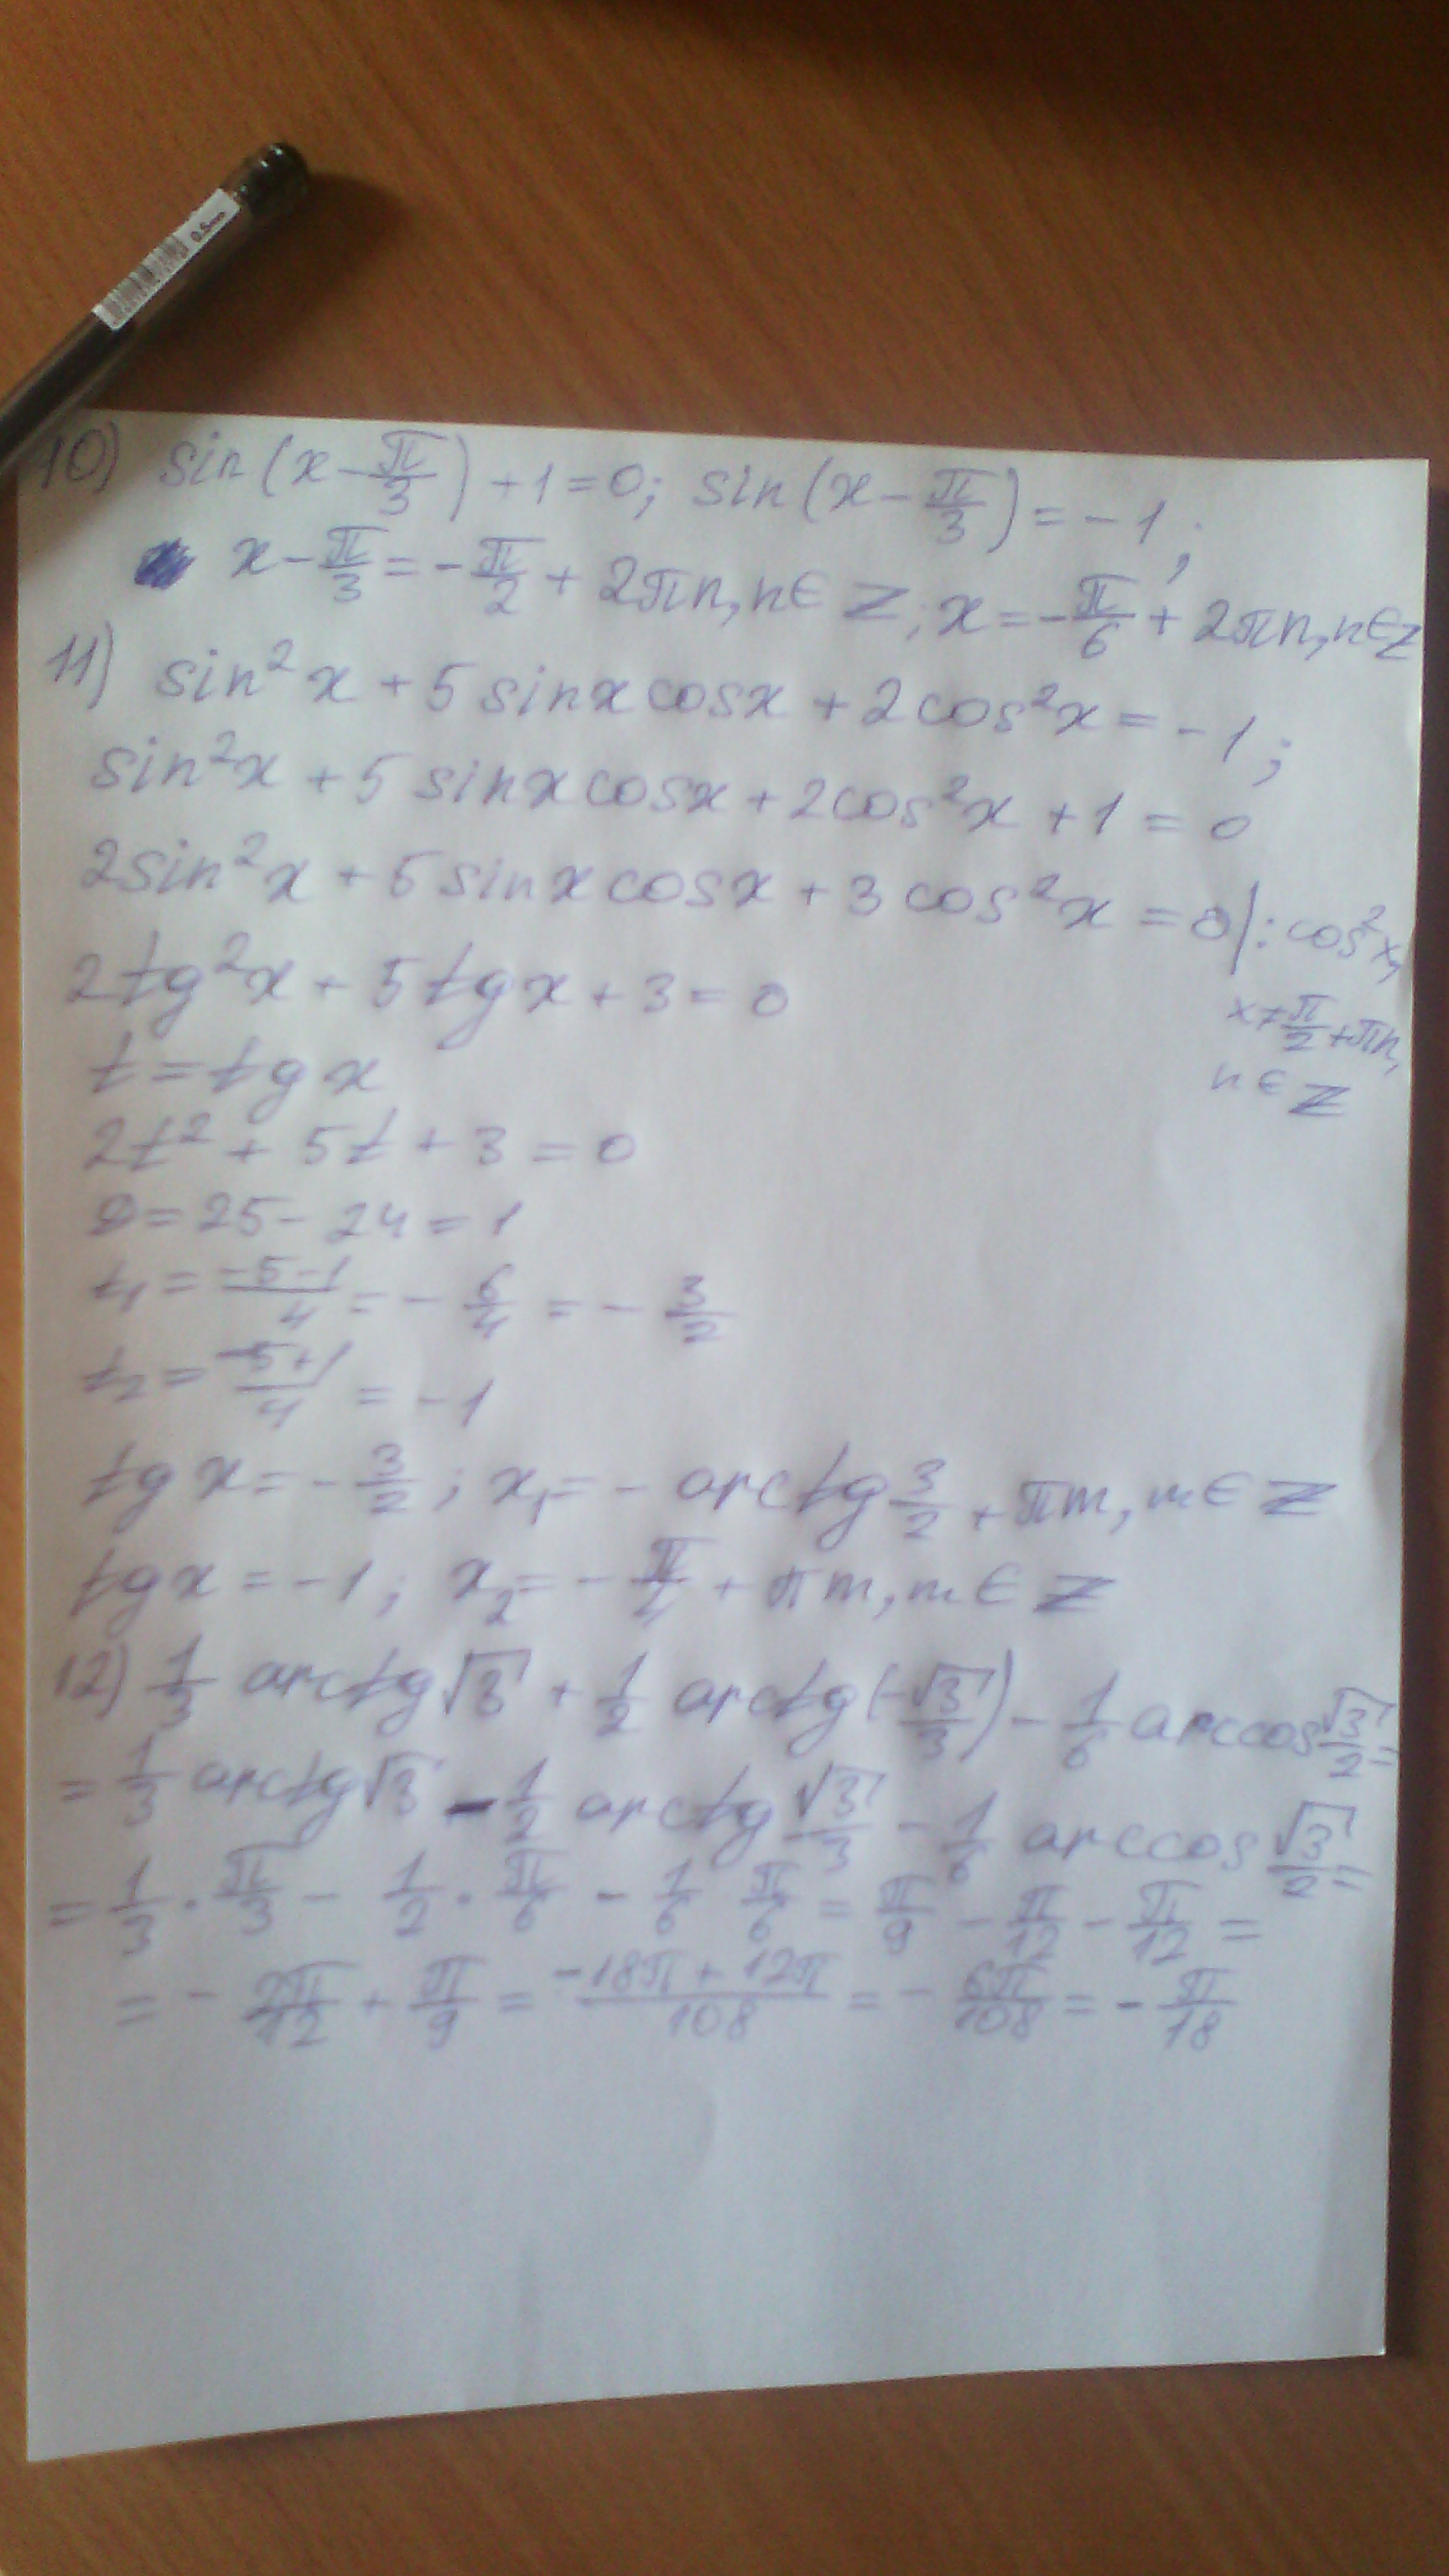 0.5mm
10) sin(x - π/3) + 1 = 0; sin(x - π/3) = -1;
x - π/3 = -π/2 + 2πn, n ∈ Z; x = -π/6 + 2πn, n ∈ Z
11) sin²x + 5 sinx cosx + 2cos²x = -1;
sin²x + 5 sinx cosx + 2cos²x + 1 = 0
2sin²x + 5 sinx cosx + 3cos²x = 0 |: cos²x,
x ≠ π/2 + πn,
n ∈ Z
2tg²x + 5tgx + 3 = 0
t = tgx
2t² + 5t + 3 = 0
D = 25 - 24 = 1
t₁ = (-5-1)/4 = -6/4 = -3/2
t₂ = (-5+1)/4 = -1
tgx = -3/2; x₁ = -arctg 3/2 + πm, m ∈ Z
tgx = -1; x₂ = -π/4 + πm, m ∈ Z
12) 1/3 arctg√3 + 1/2 arctg(-√3/3) - 1/6 arccos √3/2 =
= 1/3 arctg√3 - 1/2 arctg √3/3 - 1/6 arccos √3/2 =
= 1/3 · π/3 - 1/2 · π/6 - 1/6 π/6 = π/9 - π/12 - π/12 =
= -2π/12 + π/9 = (-18π + 12π)/108 = -6π/108 = -π/18